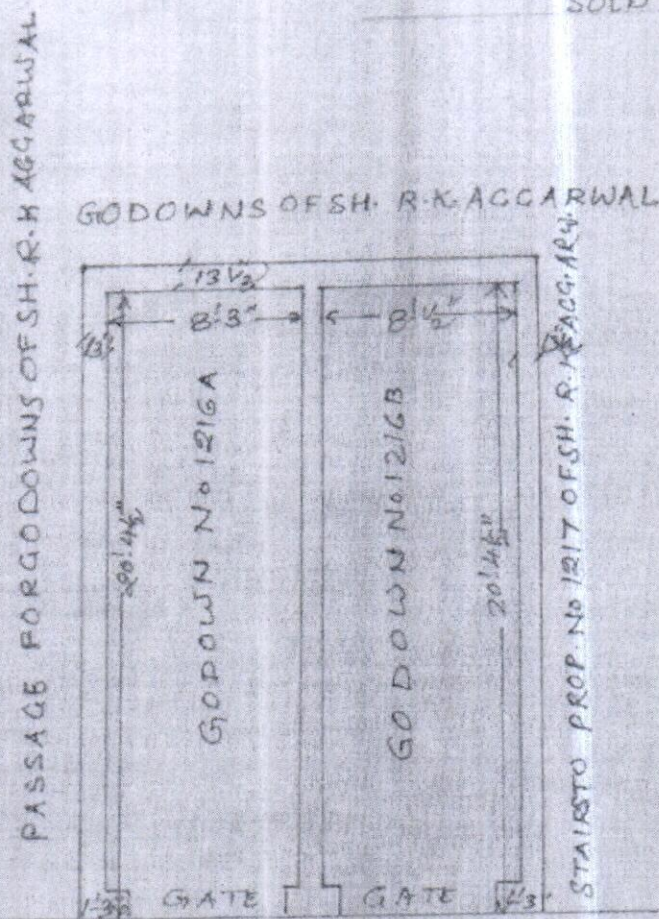 SOLD
PASSAGE FOR GODOWNS OF SH. R.K AGGARWAL
GODOWNS OF SH. R.K. AGGARWAL
13 1/2
8'3"
8' 1/2"
GODOWN No 1216A
GODOWN No 1216B
20'.4 1/2"
20'.4 1/2"
STAIRS TO PROP. No 1217 OF SH. R.K. AGGARW.
GATE
GATE
1'-3"